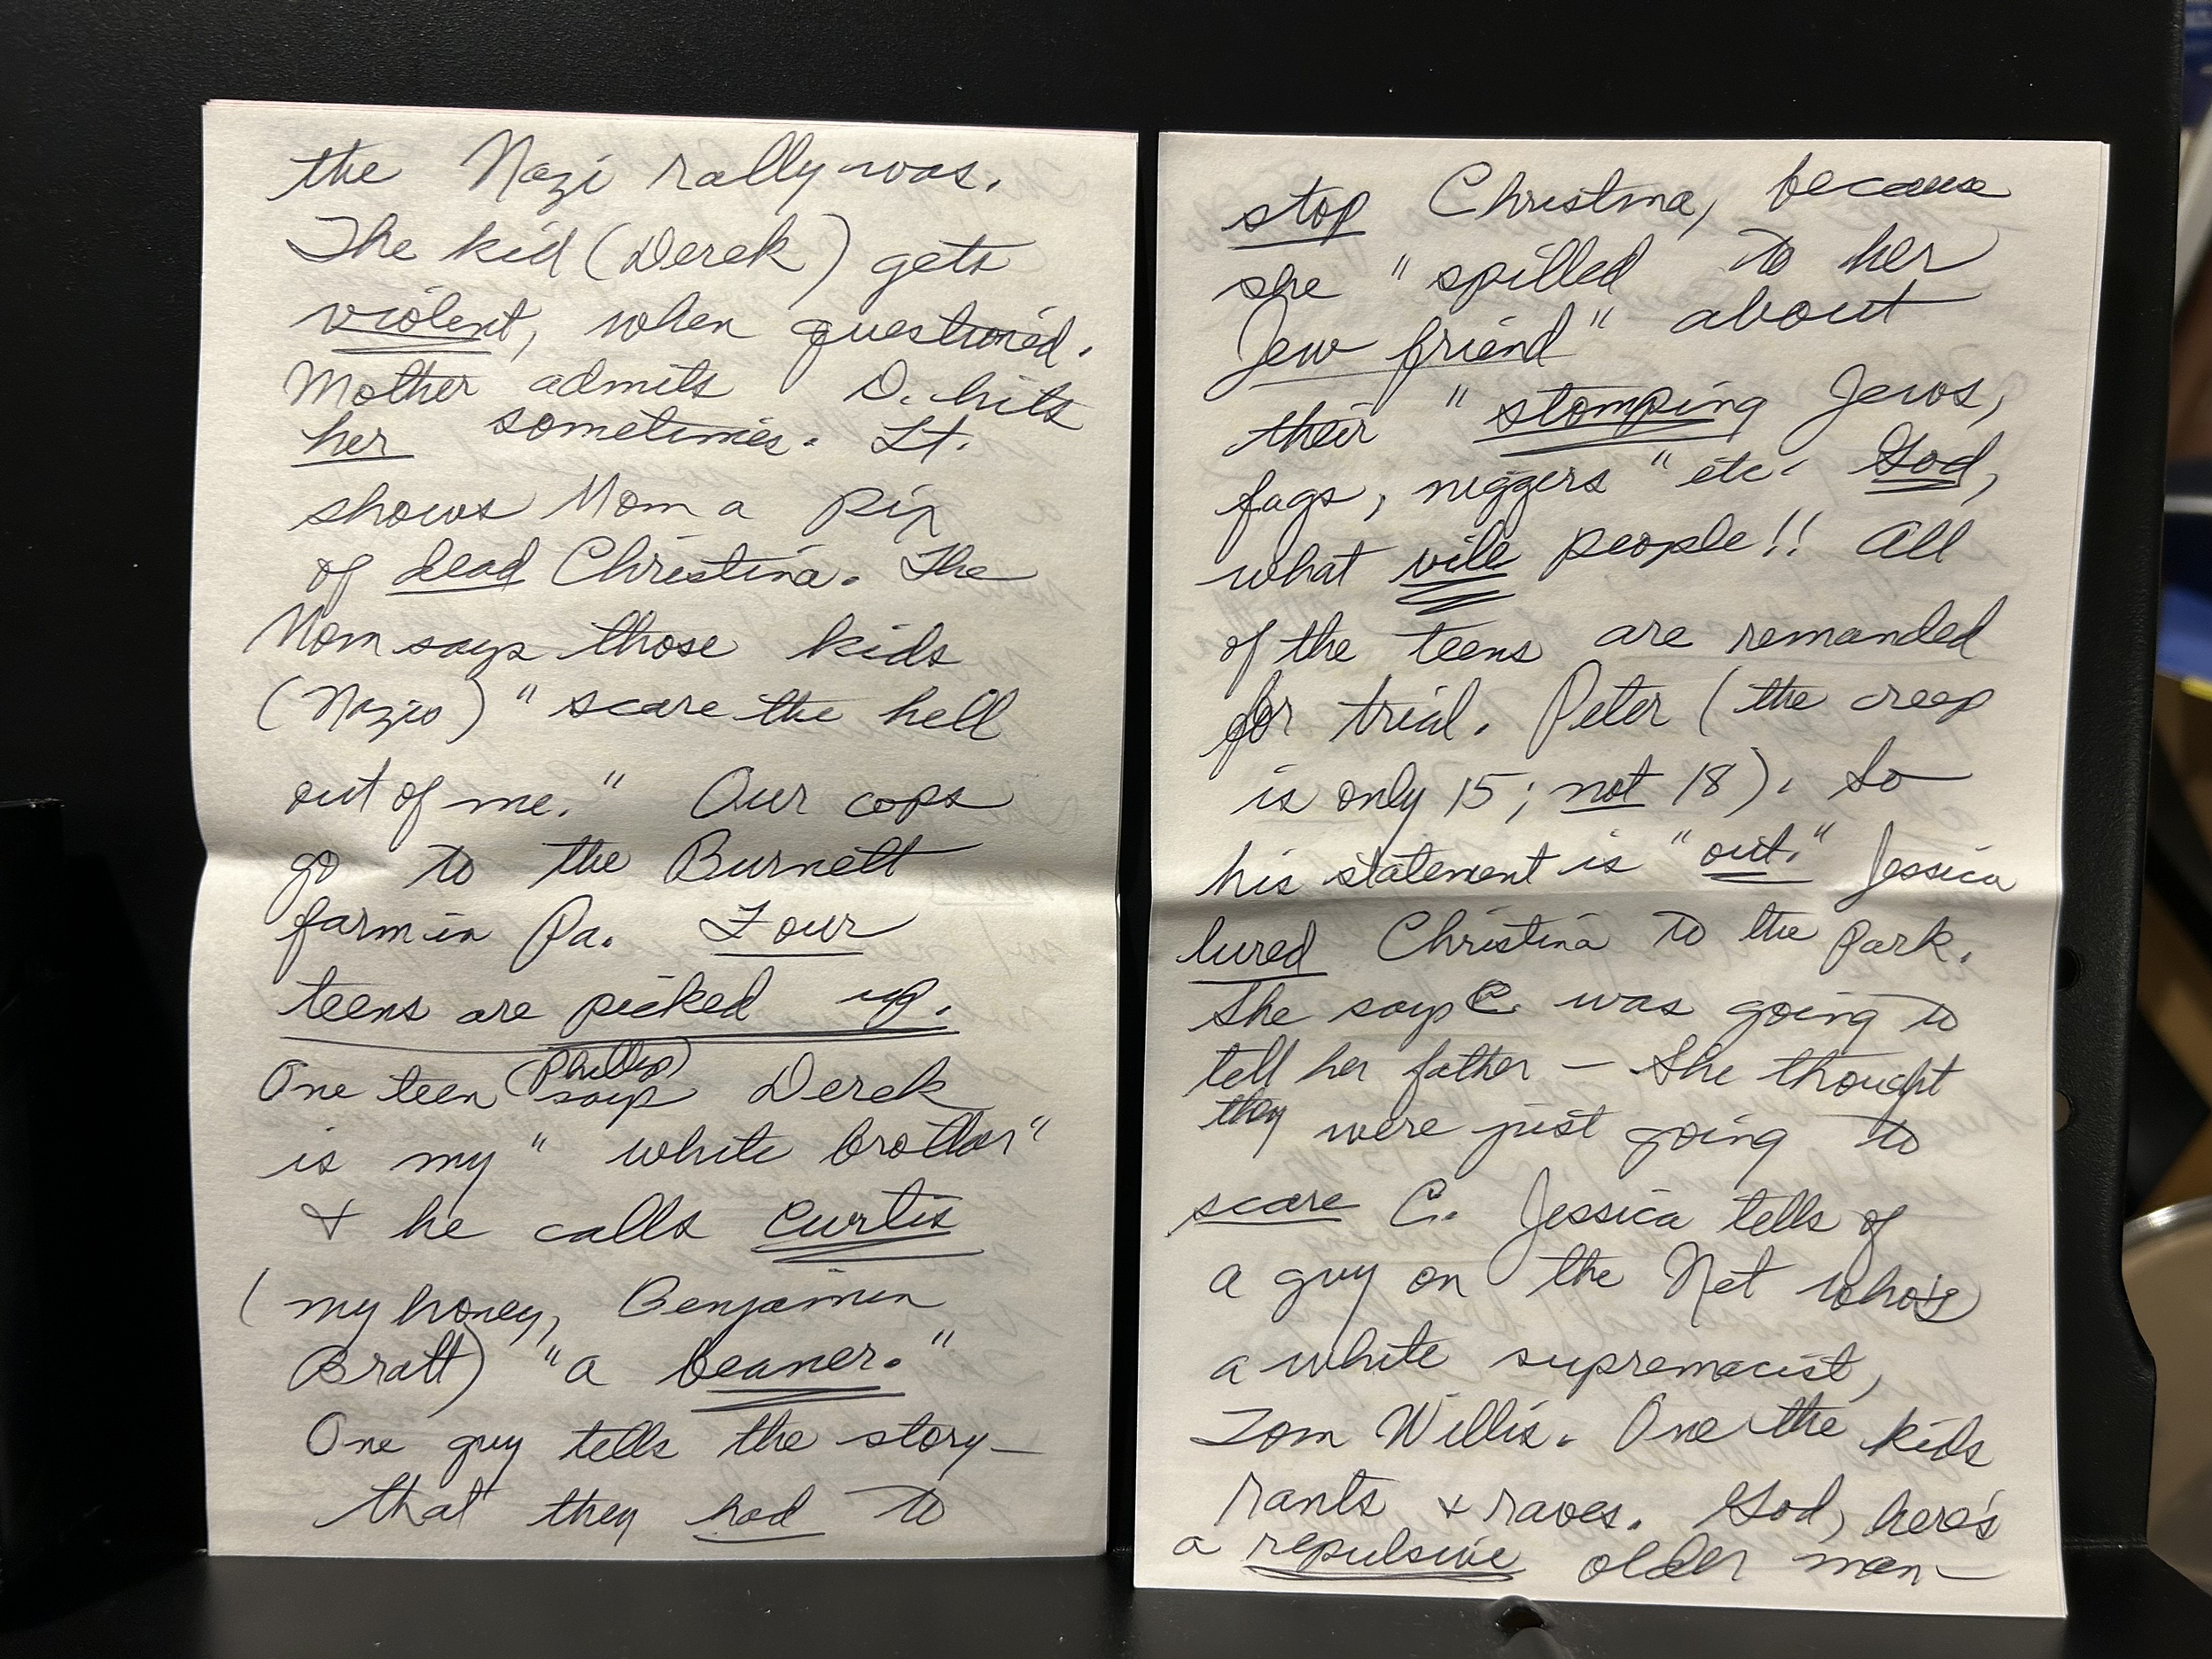 the Nazi rally was.
The kid (Derek) gets
violent, when questioned.
Mother admits D. hits
her sometimes. Lt.
shows Mom a pix
of dead Christina. The
Mom says those kids
(Nazis) "scare the hell
out of me." Our cops
go to the Burnett
farm in Pa. Four
teens are picked up.
One teen (Phillip) says Derek
is my "white brother"
& he calls Curtis
(my honey, Benjamin
Bratt) "a beaner."
One guy tells the story—
that they had to
stop Christina, because
she "spilled to her
Jew friend" about
their "stomping Jews,
fags, niggers" etc. God,
what vile people!! All
of the teens are remanded
for trial. Peter (the creep
is only 15; not 18). So
his statement is "out." Jessica
lured Christina to the Park.
She says C. was going to
tell her father — She thought
they were just going to
scare C. Jessica tells of
a guy on the Net who's
a white supremacist,
Tom Willis. One the kids
rants & raves. God, here's
a repulsive older man—